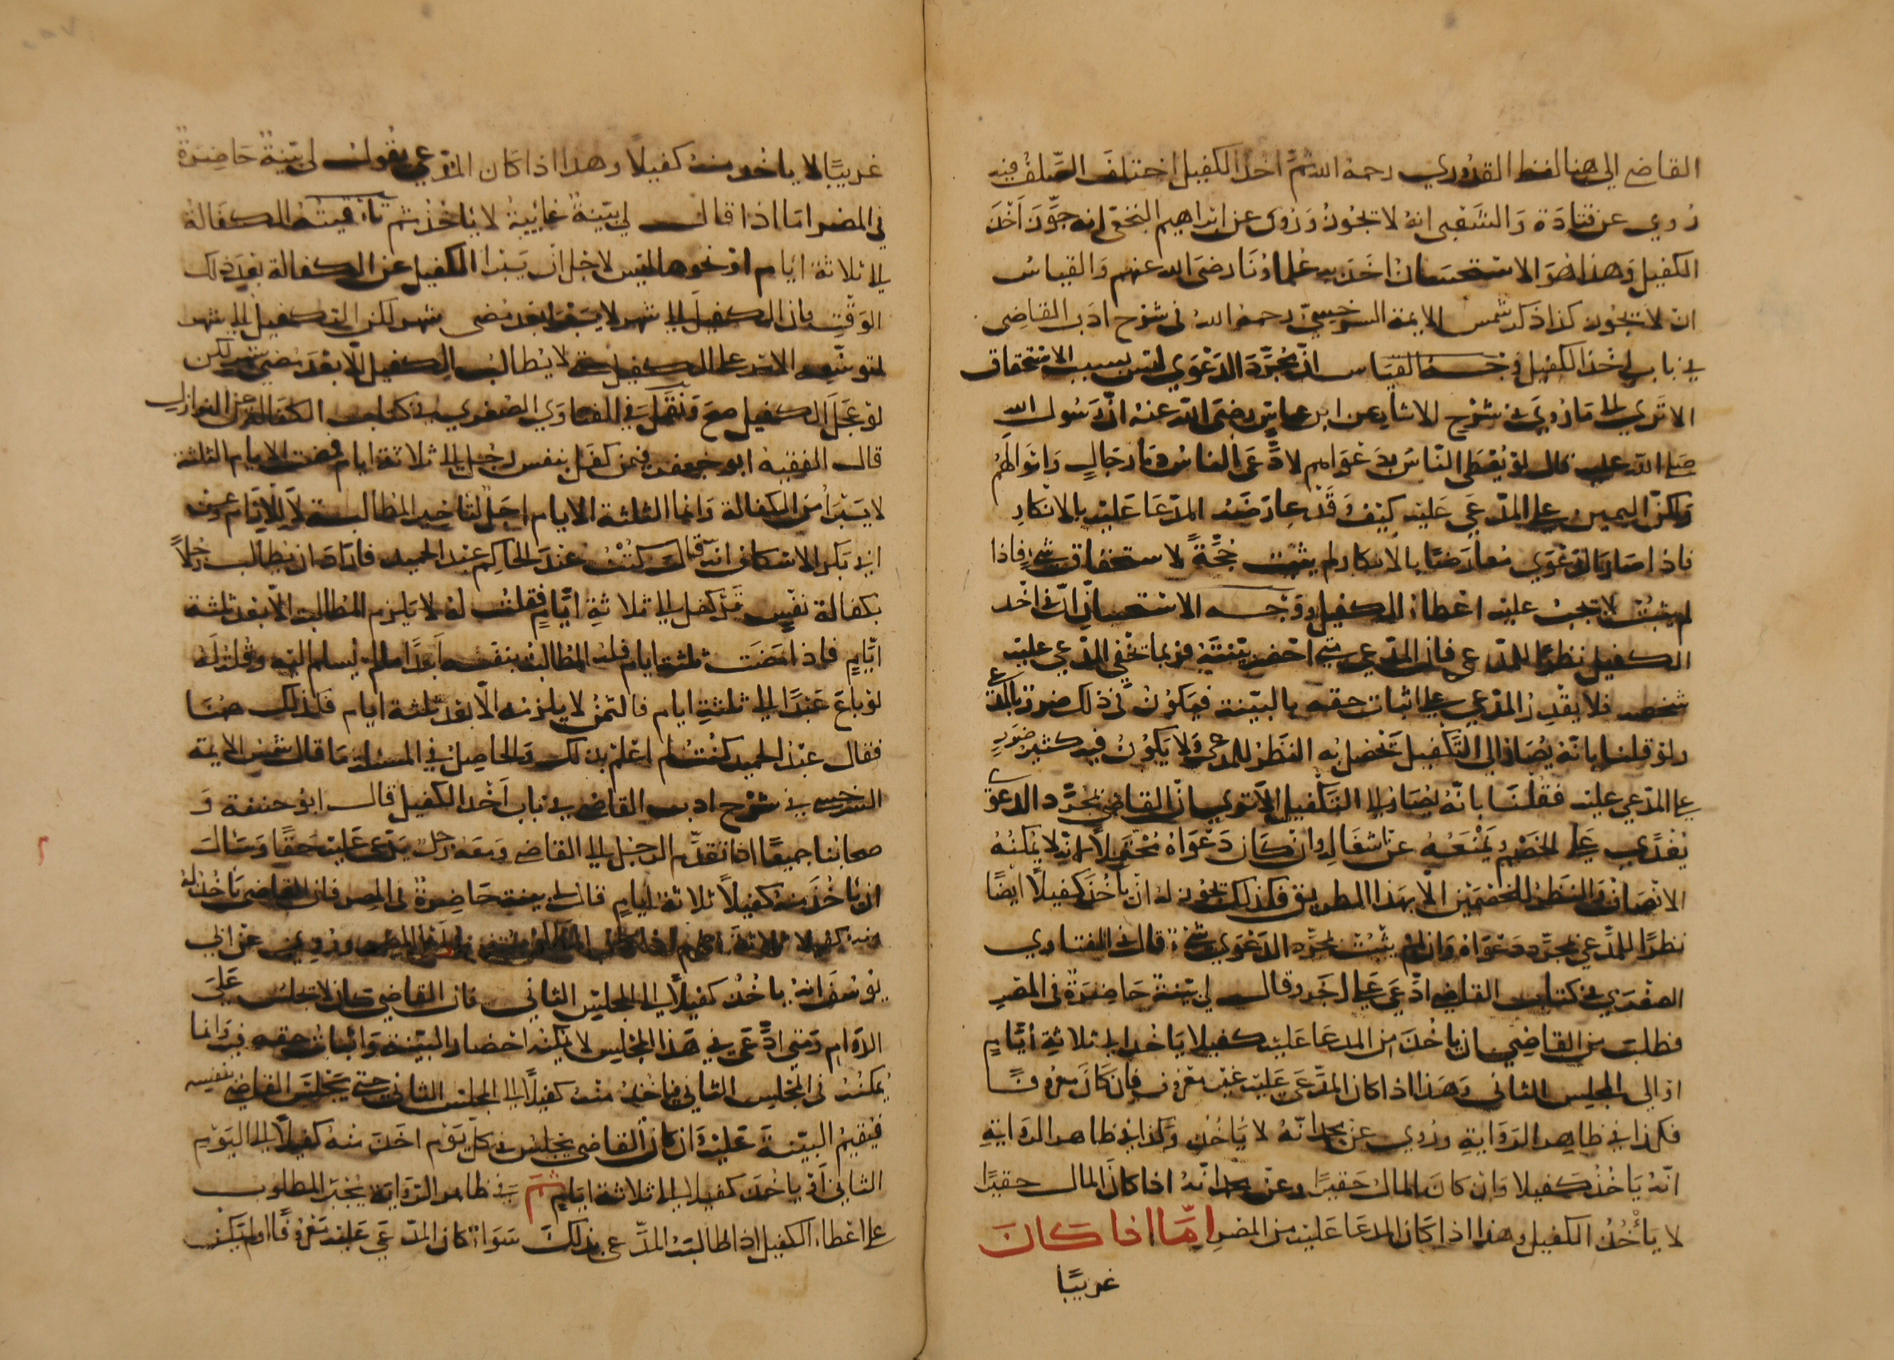 القاضي الى هنا لفظ القدوري رحمه الله ثم اخذ الكفيل اختلف السلف فيه
رُوي عن قتادة وَالشعبي انهُ لا تجوزُ وَرُوي عن ابراهيم النخعي انه جوَّزَ اَخْذَ
الكفيل وَهذا هوَ الاستحسان اَخَذَ به علماؤنا رضيَ الله عنهم وَالقياسُ
ان لا تجوز كذا ذكر شمس الايمة السرخسيّ رحمهُ الله في شرْح ادَب القاضي
في باب اخذ الكفيل وجـه القيَاس انّ مُجرَّدَ الدعْوَي ليس بسبب الاستحقاق
الا تَري الى مَا رُوِيَ في شرْح الاثار عن ابن عباس رضيَ الله عنهُ انّ رَسُول الله
صلى الله عليه قال لوْ يُعْطَى النّاسُ بدَعْوَاهم لادَّعَى الناسُ دمَاء رجَالٍ وَامْوَالَهُمْ
وَلكنّ اليمين على المدّعي عَليْه كيْف وَقَدْ عارَضَهُ المدّعَا عَليْه بالانكارِ
فاذا صَارَ الدعْوَي مُعارَضًا بالانكار لم يثبُت حُجّةً لاستحقاق شيْءٍ فاذا
لم يثبُتْ لا تجبُ عليْه اعْطاءُ الكفيل ووَجْـه الاسْتحسان انّ في اخْذ
الكفيل نظرًا للمدّعي فان المدّعي متى احْضرَ بيّنتَهُ فربما تخفّي المدّعي عليْه
شخصه فلا يقْدِرُ المدّعي على اثبات حقه بالبيّنة فيَكوُنُ في ذلك ضررٌ بالمدّعي
ولوْ قلنا بانّهُ يُصَارُ الى التكفيل يَحْصُلُ به النظَرُ للمدّعي وَلا يَكوُنُ فيه كثيرُ ضَرَرٍ
على المدّعي عليه فقُلنَا بانّهُ يُصَارُ الى التكفيل الا تَري انّ القاضِيَ بمُجَرَّد الدعوَي
يُعْدِي على الخَصْم وَيَمْنَعُهُ عن اشغَاله وان كَانَ دَعْوَاهُ مُحْتَمِلاً لانهُ لا يُمْكنُهُ
الانصَاف وَالنظَرُ للخصْمَيْن الا بهَذا الطريق فكذلك تجُوز له انْ يَأخُذَ كفيلاً ايْضًا
نظَرًا للمدّعي بمُجرّد دَعْوَاهُ وَان لم يثبُتْ بمُجرّد الدّعْوَي شَيْءٌ قال في الفتاوي
الصُغرَي في كتاب القضاء ادّعَي عَلى اخَر وقال لي بيّنةٌ حَاضِرَةٌ في المصْرِ
فطلبَ من القاضِي ان ياخُذَ من المدعَا عَليْه كفيلا يَاخُذ الى ثلاثةِ أيّامٍ
اوْ الى المجلسِ الثاني وَهَذا اذا كان المدّعَي عَليْه غيْرَ معْرُوفٍ فاِن كَانَ معْرُوفًا
فكذا في ظاهِر الرّوَايةِ ورُوي عن محمد انّهُ لا يَأخُذُ وَكذا في ظاهر الروَايةِ
انّهُ يَأخُذُ كَفيلا وَان كانَ المالُ حَقيرًا وعن محمد انّهُ اذا كانَ المال حقيرًا
لا يَأخُذُ الكفيل وهذا اذا كانَ المدعَا عَليْه من المصْرِ امّا اذا كانَ
غريبًا
غريبًا لا ياخذ منهُ كفيلًا وهذا اذا كان المدّعي يقول لي بيّنةٌ حَاضِرَةٌ
في المصْر امَا اذا قال لي بيّنةٌ غَائِبةٌ لا يَاخُذُ ثم تاقيتُهُ الكفَالةَ
الى ثلاثة ايام اوْ نحوها ليْس لاجْل انْ يَبْرا الكفيل عن الكفالة بعْدَ ذلك
الوَقْتِ فان الكفيلَ الى شهر لا يَبْرَا بعْدَ مُضي شهر لكن التكفيل الى شهر
لتوسِعَه الامْر على الكفيل حتى لا يُطالب الكفيل الّا بعْدَ مُضي شهر لكن
لوْ عجّلَ الكفيل صحّ وَنُقِلَ في الفتاوَي الصُغري في كتاب الكفالة من النوازل
قال الفقيه ابو جعفر فيمَن كفَل بنفس رجُل الى ثلاثة ايام فمضت الايام الثلثة
لا يَبْرَأُ منَ الكفالة وَانما الثلثة الايام اجَلٌ لتأخير المطالبـة
ابي بَكر الاسكاف انهُ قال كُنْتُ عنْدَ الحاكم عبْد الحميد فارَادَ ان يُطالِبَ رَجُلاً
بكفالة نفْسٍ قدْ كفل الى ثلاثةِ ايّامٍ فقلتُ لهُ لا يَلزم المطالبة الّا بعْد ثلثة
ايّامٍ فاذا مَضَت ثلثة ايام فلهُ المطالبة بنفسه اَبدًا ما لم يُسلم اليْه وقُلتُ لهُ
لوْ باعَ عَبْدًا الى ثلثةِ ايام فالثمنُ لا يلزمُه الّا بعْدَ ثلثة ايام فكذلك هُنَا
فقال عبْدُ الحميد كُنْتُ لم اعْلمْ بذلك وَالحاصِل في المسئلة مَا قال شمْسُ الايمة
السرَخسِي في شرْح ادب القاضي في باب اَخْذ الكفيل قال ابو حنيفة وَ
اصحابنا جميعًا اذا تقدّم الرجُل الى القاضي وَمعَهُ رَجل يَدّعي عَليْه حَقًّا وَسَألَ
ان يَاخُذَ منهُ كفيلاً ثلاثة ايامٍ قال لي بينة حَاضِرَةٌ في المِصر فان القاضي يَأخُذ لهُ
منه كفيلا ثلاثةَ ايام ورُوي عن ابي
يُوسُفَ انهُ ياخُذُ كفيلاً الى المجلِس الثاني فان القاضي كان لا يجلس عَلَى
الدّوَام وَمتى ادَّعَى في هَذا المجْلِس لا يمكنه احْضار البيّنة وَاثبات حقه فيه وَانما
يُمكنُهُ في المجْلِس الثاني فيَاخُذُ منْهُ كفيلاً الى المجلس الثاني حتى يَجْلسَ القاضي بنفسه
فيُقيمُ البيّنةَ عَليْه وَان كانَ القاضي يجلسُ في كلّ يَوْم اخَذَ منهُ كفيلاً الى اليَوْم
الثاني اَوْ ياخُذَ كفيلا الى ثلاثة ايامٍ ثُمَّ في ظاهر الروَاية يُجْبَر المطلوب
على اعْطاء الكفيل اذا طالبَهُ المدّعي بذلك سَوَاءٌ كان المدّعَي عَليْه مَعْرُوفًا اوْ لم يَكنْ